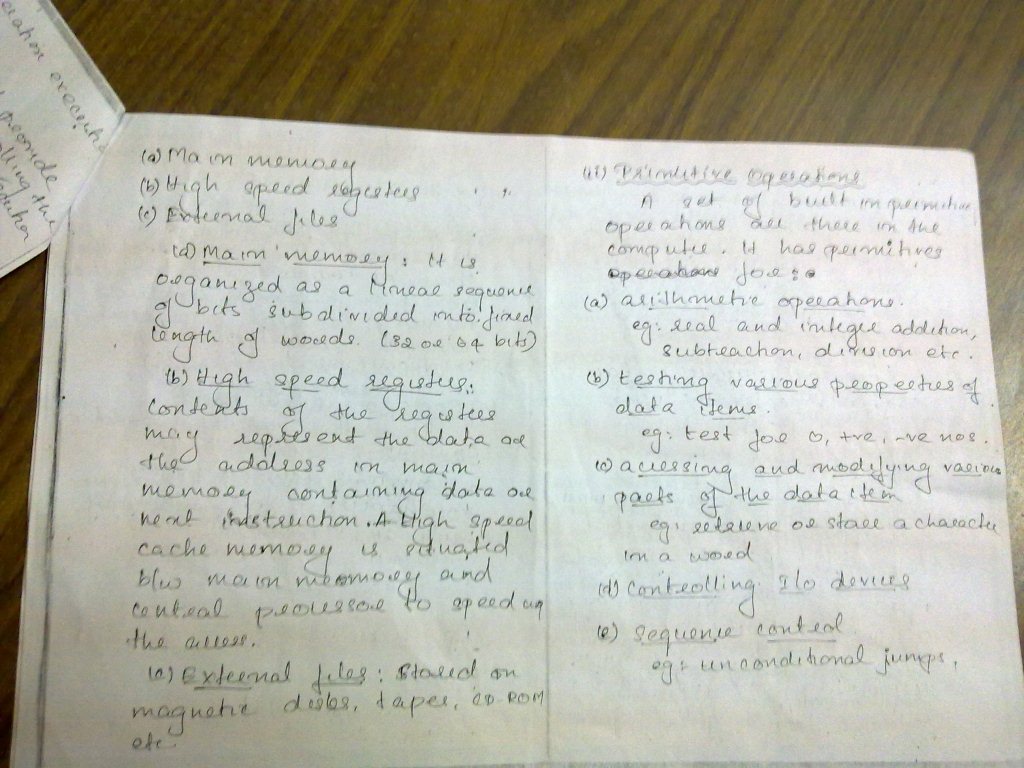 eration executio
provide
lling the
(a) Main memory
(b) High speed registers
(c) External files
(a) Main memory : It is
organized as a linear sequence
of bits subdivided into fixed
length of words. (32 or 64 bits)
(b) High speed registers:
Contents of the registers
may represent the data or
the address in main
memory containing data or
next instruction. A High speed
cache memory is situated
b/w main memory and
central processor to speed up
the access.
(c) External files : Stored on
magnetic disks, tapes, CD-ROM
etc
(ii) Primitive Operations
A set of built in primitive
operations are there in the
computer. It has primitives
operations for :
(a) arithmetic operations.
eg: real and integer addition,
subtraction, division etc.
(b) testing various properties of
data items.
eg: test for 0, +ve, -ve nos.
(c) accessing and modifying various
parts of the data item
eg: retrieve or store a character
in a word
(d) Controlling I/o devices
(e) sequence control
eg: unconditional jumps.